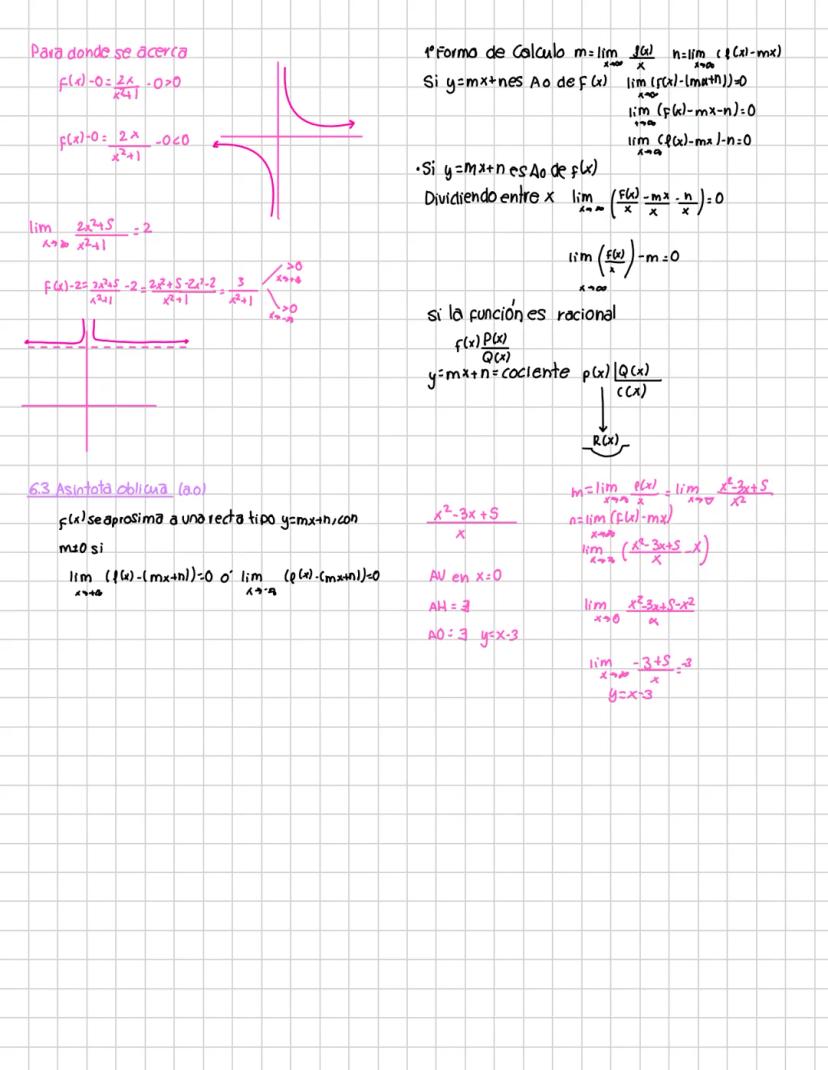 Para donde se acerca
f(x)-0=2x/x²+1 -0>0
f(x)-0= 2x/x²+1 -0<0
lim x→∞ 2x²+5/x²+1 =2
f(x)-2= 2x²+5/x²+1 -2= 2x²+5-2x²-2/x²+1 = 3/x²+1
>0 x→+∞
>0 x→-∞
6.3 Asintota oblicua (a.o)
f(x) se aprosima a una recta tipo y=mx+n, con
m≠0 si
lim x→+∞ (f(x)-(mx+n))=0 o' lim x→-∞ (f(x)-(mx+n))=0
1ª Forma de Calculo m=lim x→∞ f(x)/x n=lim x→∞ (f(x)-mx)
Si y=mx+n es Ao de f(x) lim x→∞ (f(x)-(mx+n))=0
lim x→∞ (f(x)-mx-n)=0
lim x→∞ (f(x)-mx)-n=0
·Si y=mx+n es Ao de f(x)
Dividiendo entre x lim x→∞ (f(x)/x - mx/x - n/x)=0
lim x→∞ (f(x)/x)-m=0
si la función es racional
f(x) P(x)/Q(x)
y=mx+n=cociente p(x) |Q(x)
C(x)
R(x)
x²-3x+5/x
AV en x=0
AH = ∄
AO = ∃ y=x-3
m=lim x→∞ f(x)/x = lim x→∞ x²-3x+5/x²
n=lim x→∞ (f(x)-mx)
lim x→∞ (x²-3x+5/x -x)
lim x→∞ x²-3x+5-x²/x
lim x→∞ -3+5/x =-3
y=x-3